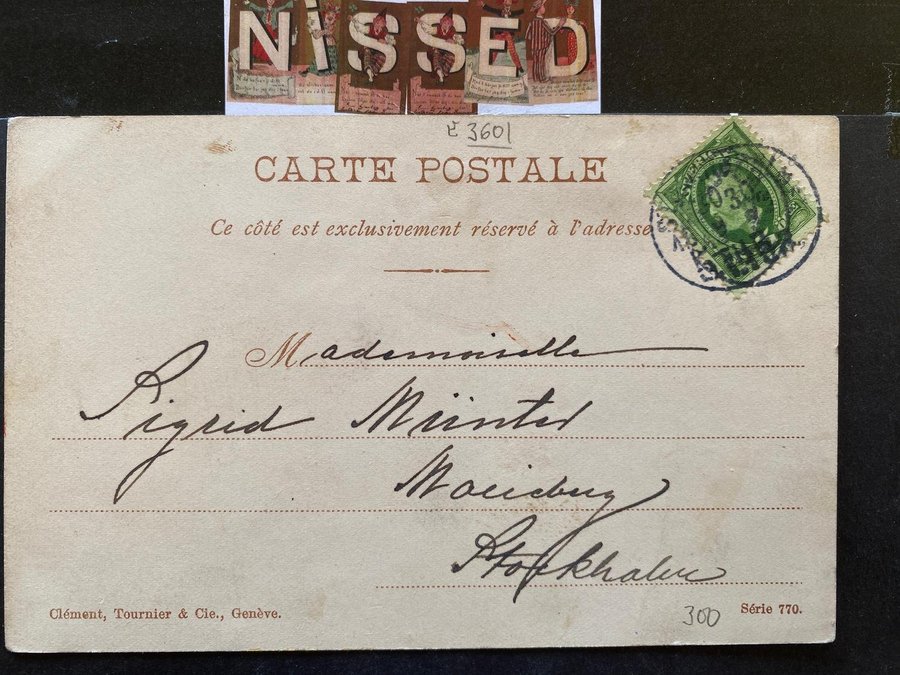 NiSSED
E 3601
CARTE POSTALE
Ce côté est exclusivement réservé à l'adresse
Mademoiselle
Sigrid Münter
Stockholm
Clément, Tournier & Cie., Genève.
300
Série 770.